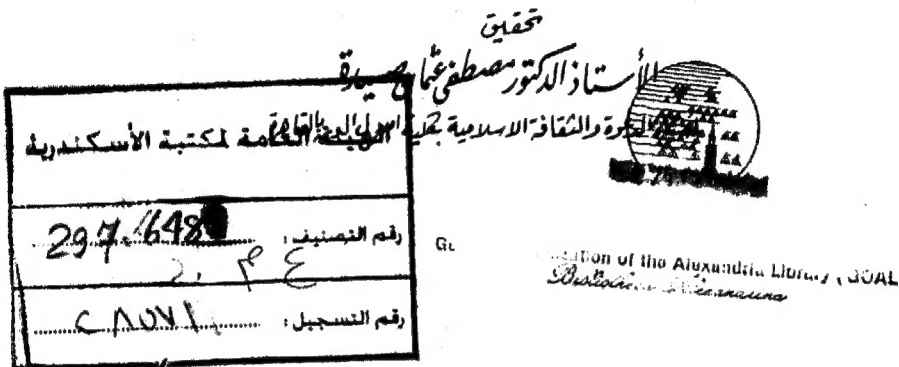 تحقيق
الأستاذ الدكتور مصطفى عثمان صميدة
الدعوة والثقافة الاسلامية بكلية
الهيئة العامة لمكتبة الأسكندرية
رقم التصنيف: 297.648
ع م
رقم التسجيل: ٢٨٥٧١
ation of the Alexandria Library , GOAL
Bibliotheca Alexandrina